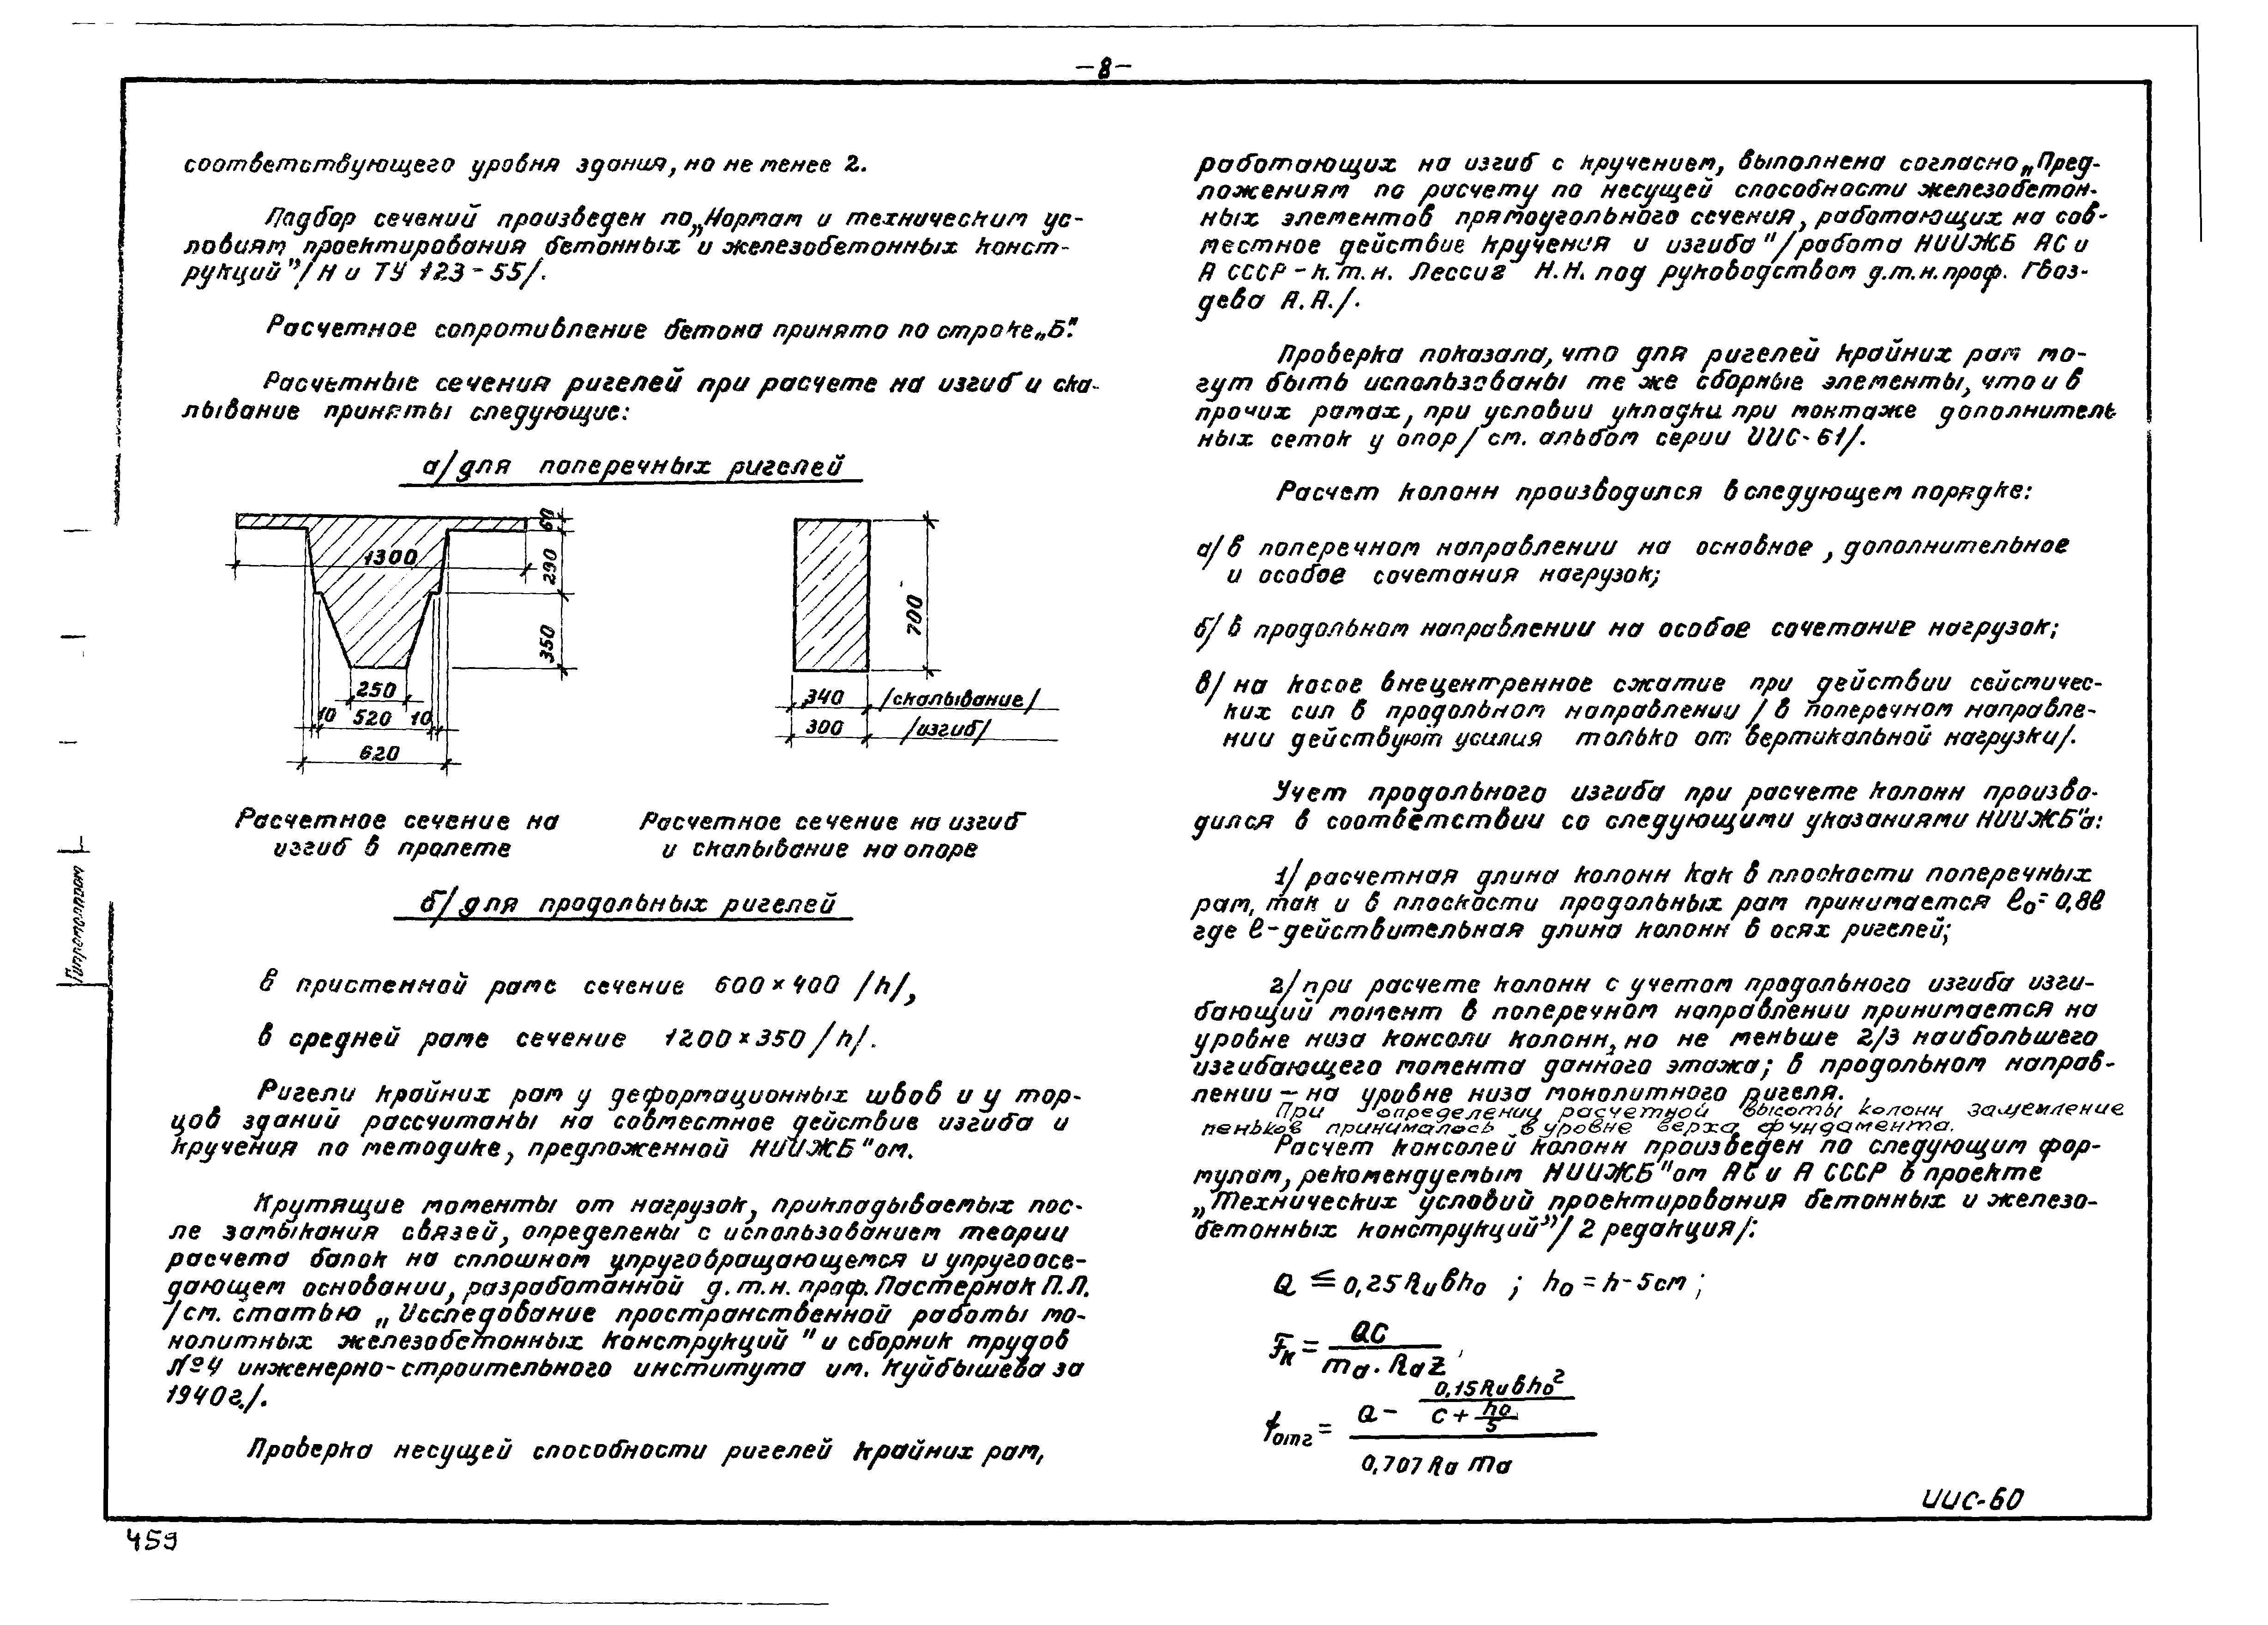 -8-
соответствующего уровня здания, но не менее 2.
Подбор сечений произведен по „Нормам и техническим ус-
ловиям проектирования бетонных и железобетонных конст-
рукций"/Н и ТУ 123-55/.
Расчетное сопротивление бетона принято по строке „Б".
Расчетные сечения ригелей при расчете на изгиб и ска-
лывание приняты следующие:
а/ для поперечных ригелей
60
1300
290
350
250
10 520 10
620
700
340 /скалывание/
300 /изгиб/
Расчетное сечение на
изгиб в пролете
Расчетное сечение на изгиб
и скалывание на опоре
б/ для продольных ригелей
в пристенной раме сечение 600×400 /h/,
в средней раме сечение 1200×350 /h/.
Ригели крайних рам у деформационных швов и у тор-
цов зданий рассчитаны на совместное действие изгиба и
кручения по методике, предложенной НИИЖБ"ом.
Крутящие моменты от нагрузок, прикладываемых пос-
ле замыкания связей, определены с использованием теории
расчета балок на сплошном упруговращающемся и упругоосе-
дающем основании, разработанной д.т.н. проф. Пастернак П.Л.
/см. статью „Исследование пространственной работы мо-
нолитных железобетонных конструкций" и сборник трудов
№4 инженерно-строительного института им. Куйбышева за
1940г./.
Проверка несущей способности ригелей крайних рам,
работающих на изгиб с кручением, выполнена согласно „Пред-
ложениям по расчету по несущей способности железобетон-
ных элементов прямоугольного сечения, работающих на сов-
местное действие кручения и изгиба"/работа НИИЖБ АС и
А СССР - к.т.н. Лессиг Н.Н. под руководством д.т.н. проф. Гвоз-
дева А.А./.
Проверка показала, что для ригелей крайних рам мо-
гут быть использованы те же сборные элементы, что и в
прочих рамах, при условии укладки при монтаже дополнитель
ных сеток у опор/ см. альбом серии ИИС-61/.
Расчет колонн производился в следующем порядке:
а/ в поперечном направлении на основное, дополнительное
и особое сочетания нагрузок;
б/ в продольном направлении на особое сочетание нагрузок;
в/ на косое внецентренное сжатие при действии сейсмичес-
ких сил в продольном направлении / в поперечном направле-
нии действуют усилия только от вертикальной нагрузки/.
Учет продольного изгиба при расчете колонн произво-
дился в соответствии со следующими указаниями НИИЖБ"а:
1/ расчетная длина колонн как в плоскости поперечных
рам, так и в плоскости продольных рам принимается ℓ₀=0,8ℓ
где ℓ-действительная длина колонн в осях ригелей;
2/ при расчете колонн с учетом продольного изгиба изги-
бающий момент в поперечном направлении принимается на
уровне низа консоли колонн, но не меньше 2/3 наибольшего
изгибающего момента данного этажа; в продольном направ-
лении - на уровне низа монолитного ригеля.
При определении расчетной высоты колонн защемление
пеньков принималось в уровне верха фундамента.
Расчет консолей колонн произведен по следующим фор-
мулам, рекомендуемым НИИЖБ"ом АС и А СССР в проекте
„Технических условий проектирования бетонных и железо-
бетонных конструкций"/ 2 редакция/:
Q ≤ 0,25Rиbh₀ ; h₀ = h-5см ;
Fк = QC / mа·RаZ ,
fотг = (Q - 0,15Rиbh₀² / (C + h₀/5)) / 0,707 Rа mа
ИИС-60
459
Гипротеплопром